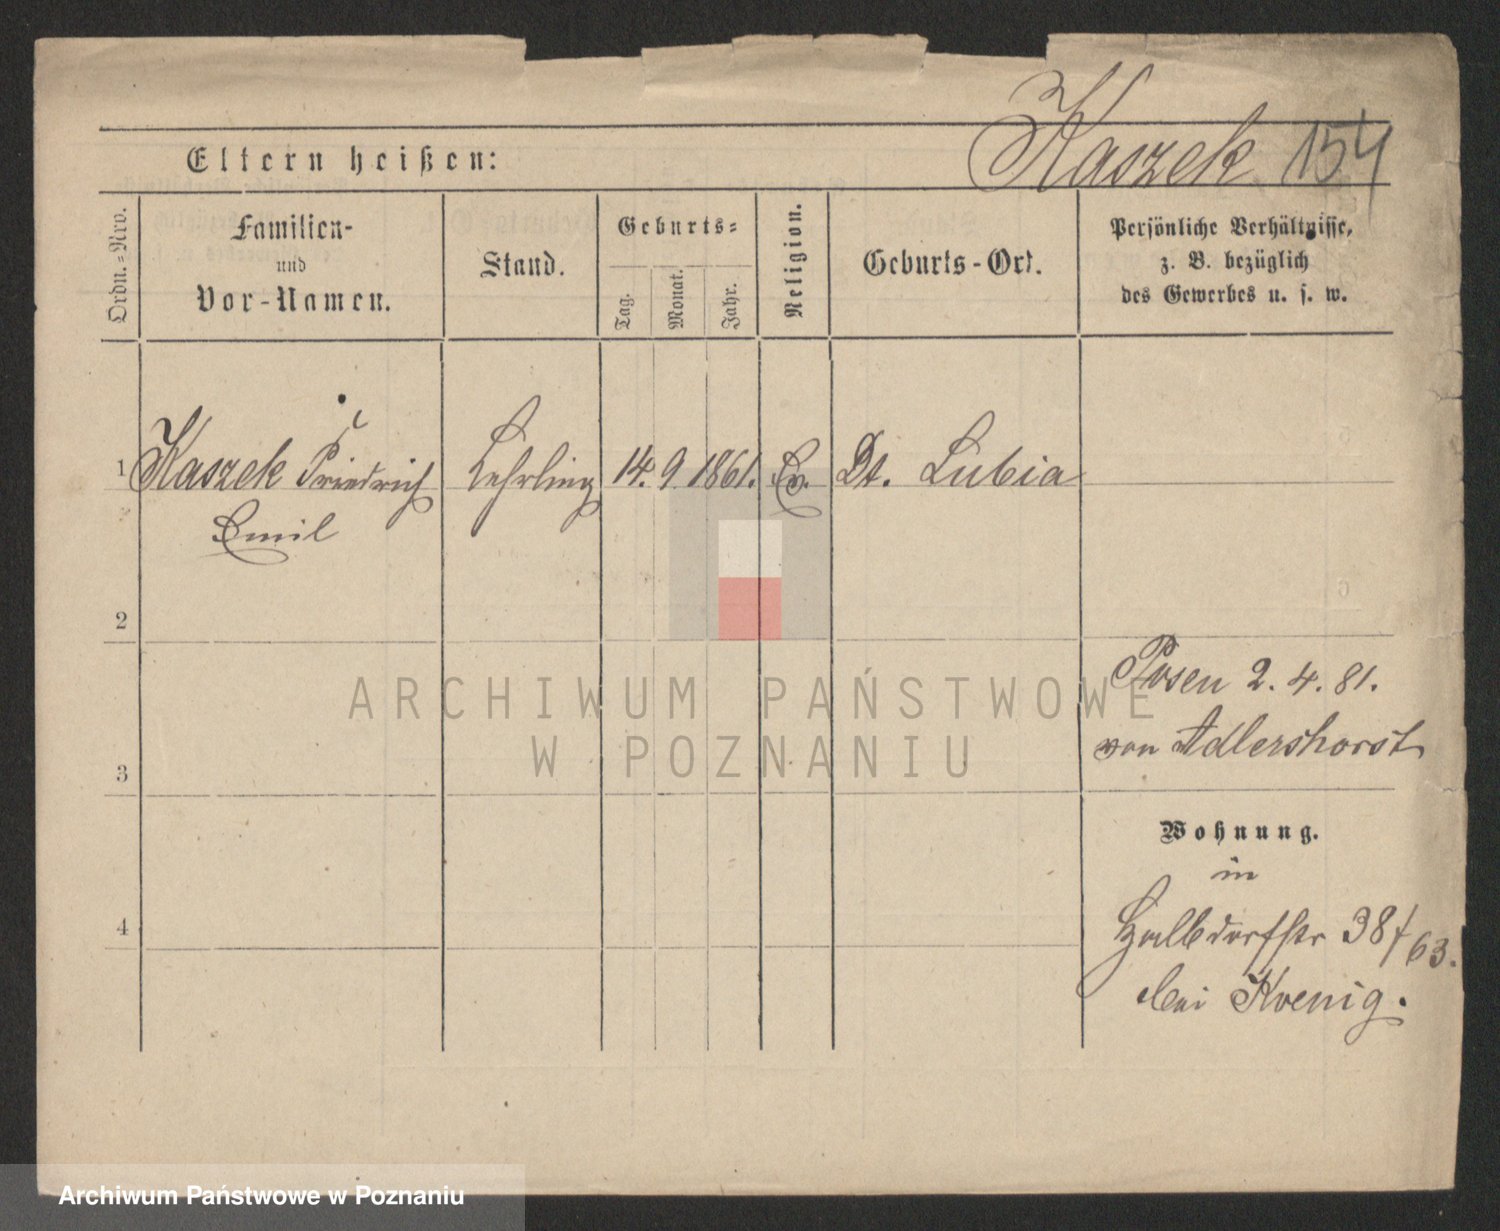 Kaszek 154
Eltern heißen:
Ordn.-Nro.
Familien-
und
Vor-Namen.
Stand.
Geburts-
Tag.
Monat.
Jahr.
Religion.
Geburts-Ort.
Persönliche Verhältnisse,
z. B. bezüglich
des Gewerbes u. s. w.
1 Kaszek Friedrich Lehrling 14. 9 1861. Ev. Dt. Lubia
Emil
2
Posen 2. 4. 81.
von Adlershorst
3
Wohnung.
in
4 Halbdorfstr 38/63.
bei Koenig.
ARCHIWUM PAŃSTWOWE
W POZNANIU
Archiwum Państwowe w Poznaniu